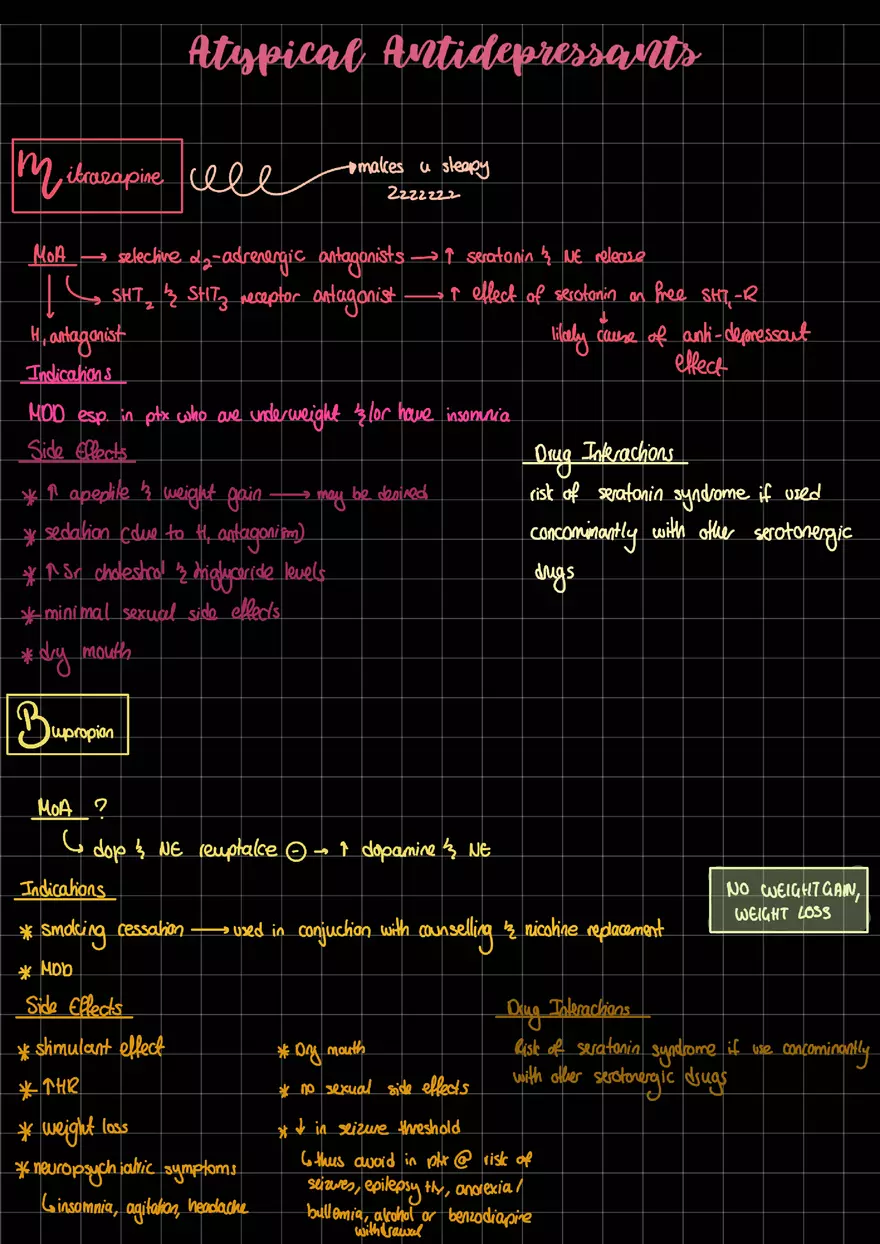 Atypical Antidepressants
Mitrazapine
makes u sleepy
zzzzzzz
MoA → selective α₂-adrenergic antagonists → ↑ serotonin & NE release
5HT₂ & 5HT₃ receptor antagonist → ↑ effect of serotonin on free 5HT₁-R
H₁ antagonist
likely cause of anti-depressant
effect
Indications
MDD esp. in ptx who are underweight &/or have insomnia
Side Effects
* ↑ apeptite & weight gain → may be desired
* sedation (due to H₁ antagonism)
* ↑ Sr cholestrol & triglyceride levels
* minimal sexual side effects
* dry mouth
Drug Interactions
risk of seratonin syndrome if used
concominantly with other serotonergic
drugs
Bupropion
MoA ?
dop & NE reuptake ⊖ → ↑ dopamine & NE
NO WEIGHT GAIN,
WEIGHT LOSS
Indications
* smoking cessation → used in conjuction with counselling & nicotine replacement
* MDD
Side Effects
* stimulant effect
* ↑HR
* weight loss
* neuropsychiatric symptoms
↳ insomnia, agitation, headache
* Dry mouth
* no sexual side effects
* ↓ in seizure threshold
↳ thus avoid in ptx @ risk of
seizures, epilepsy Hx, anorexia/
bullemia, alcohol or benzodiapine
withdrawal
Drug Interactions
Risk of seratonin syndrome if use concominantly
with other serotonergic drugs